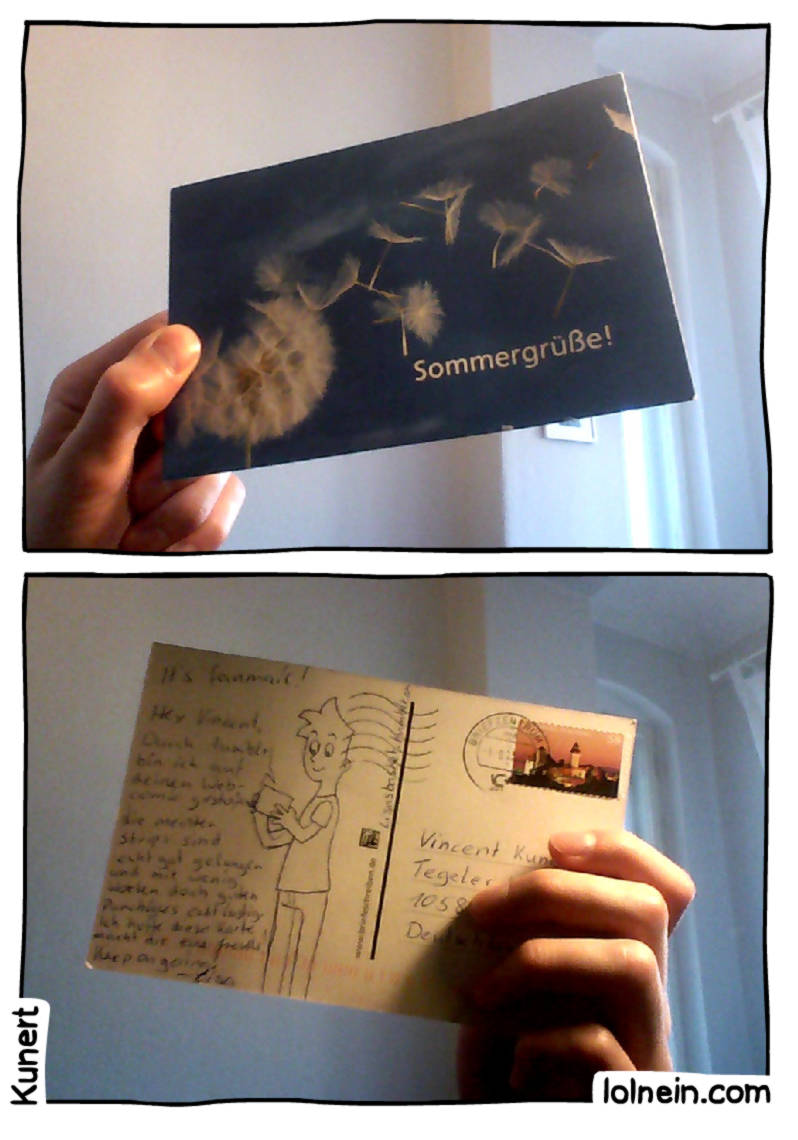 Sommergrüße!
It's fanmail!
Hey Vincent,
Durch tumblr
bin ich auf
deinen Web-
comic gestoßen
die meisten
Strips sind
echt gut gelungen
und mit wenig
Worten doch guten
Punchlines echt lustig.
Ich hoffe diese Karte
macht dir eine Freude!
Keep on going!
BRIEFZENTRUM
www.briefeschreiben.de
Vincent Kun
Tegeler
1058
Deutsch
Kunert
lolnein.com